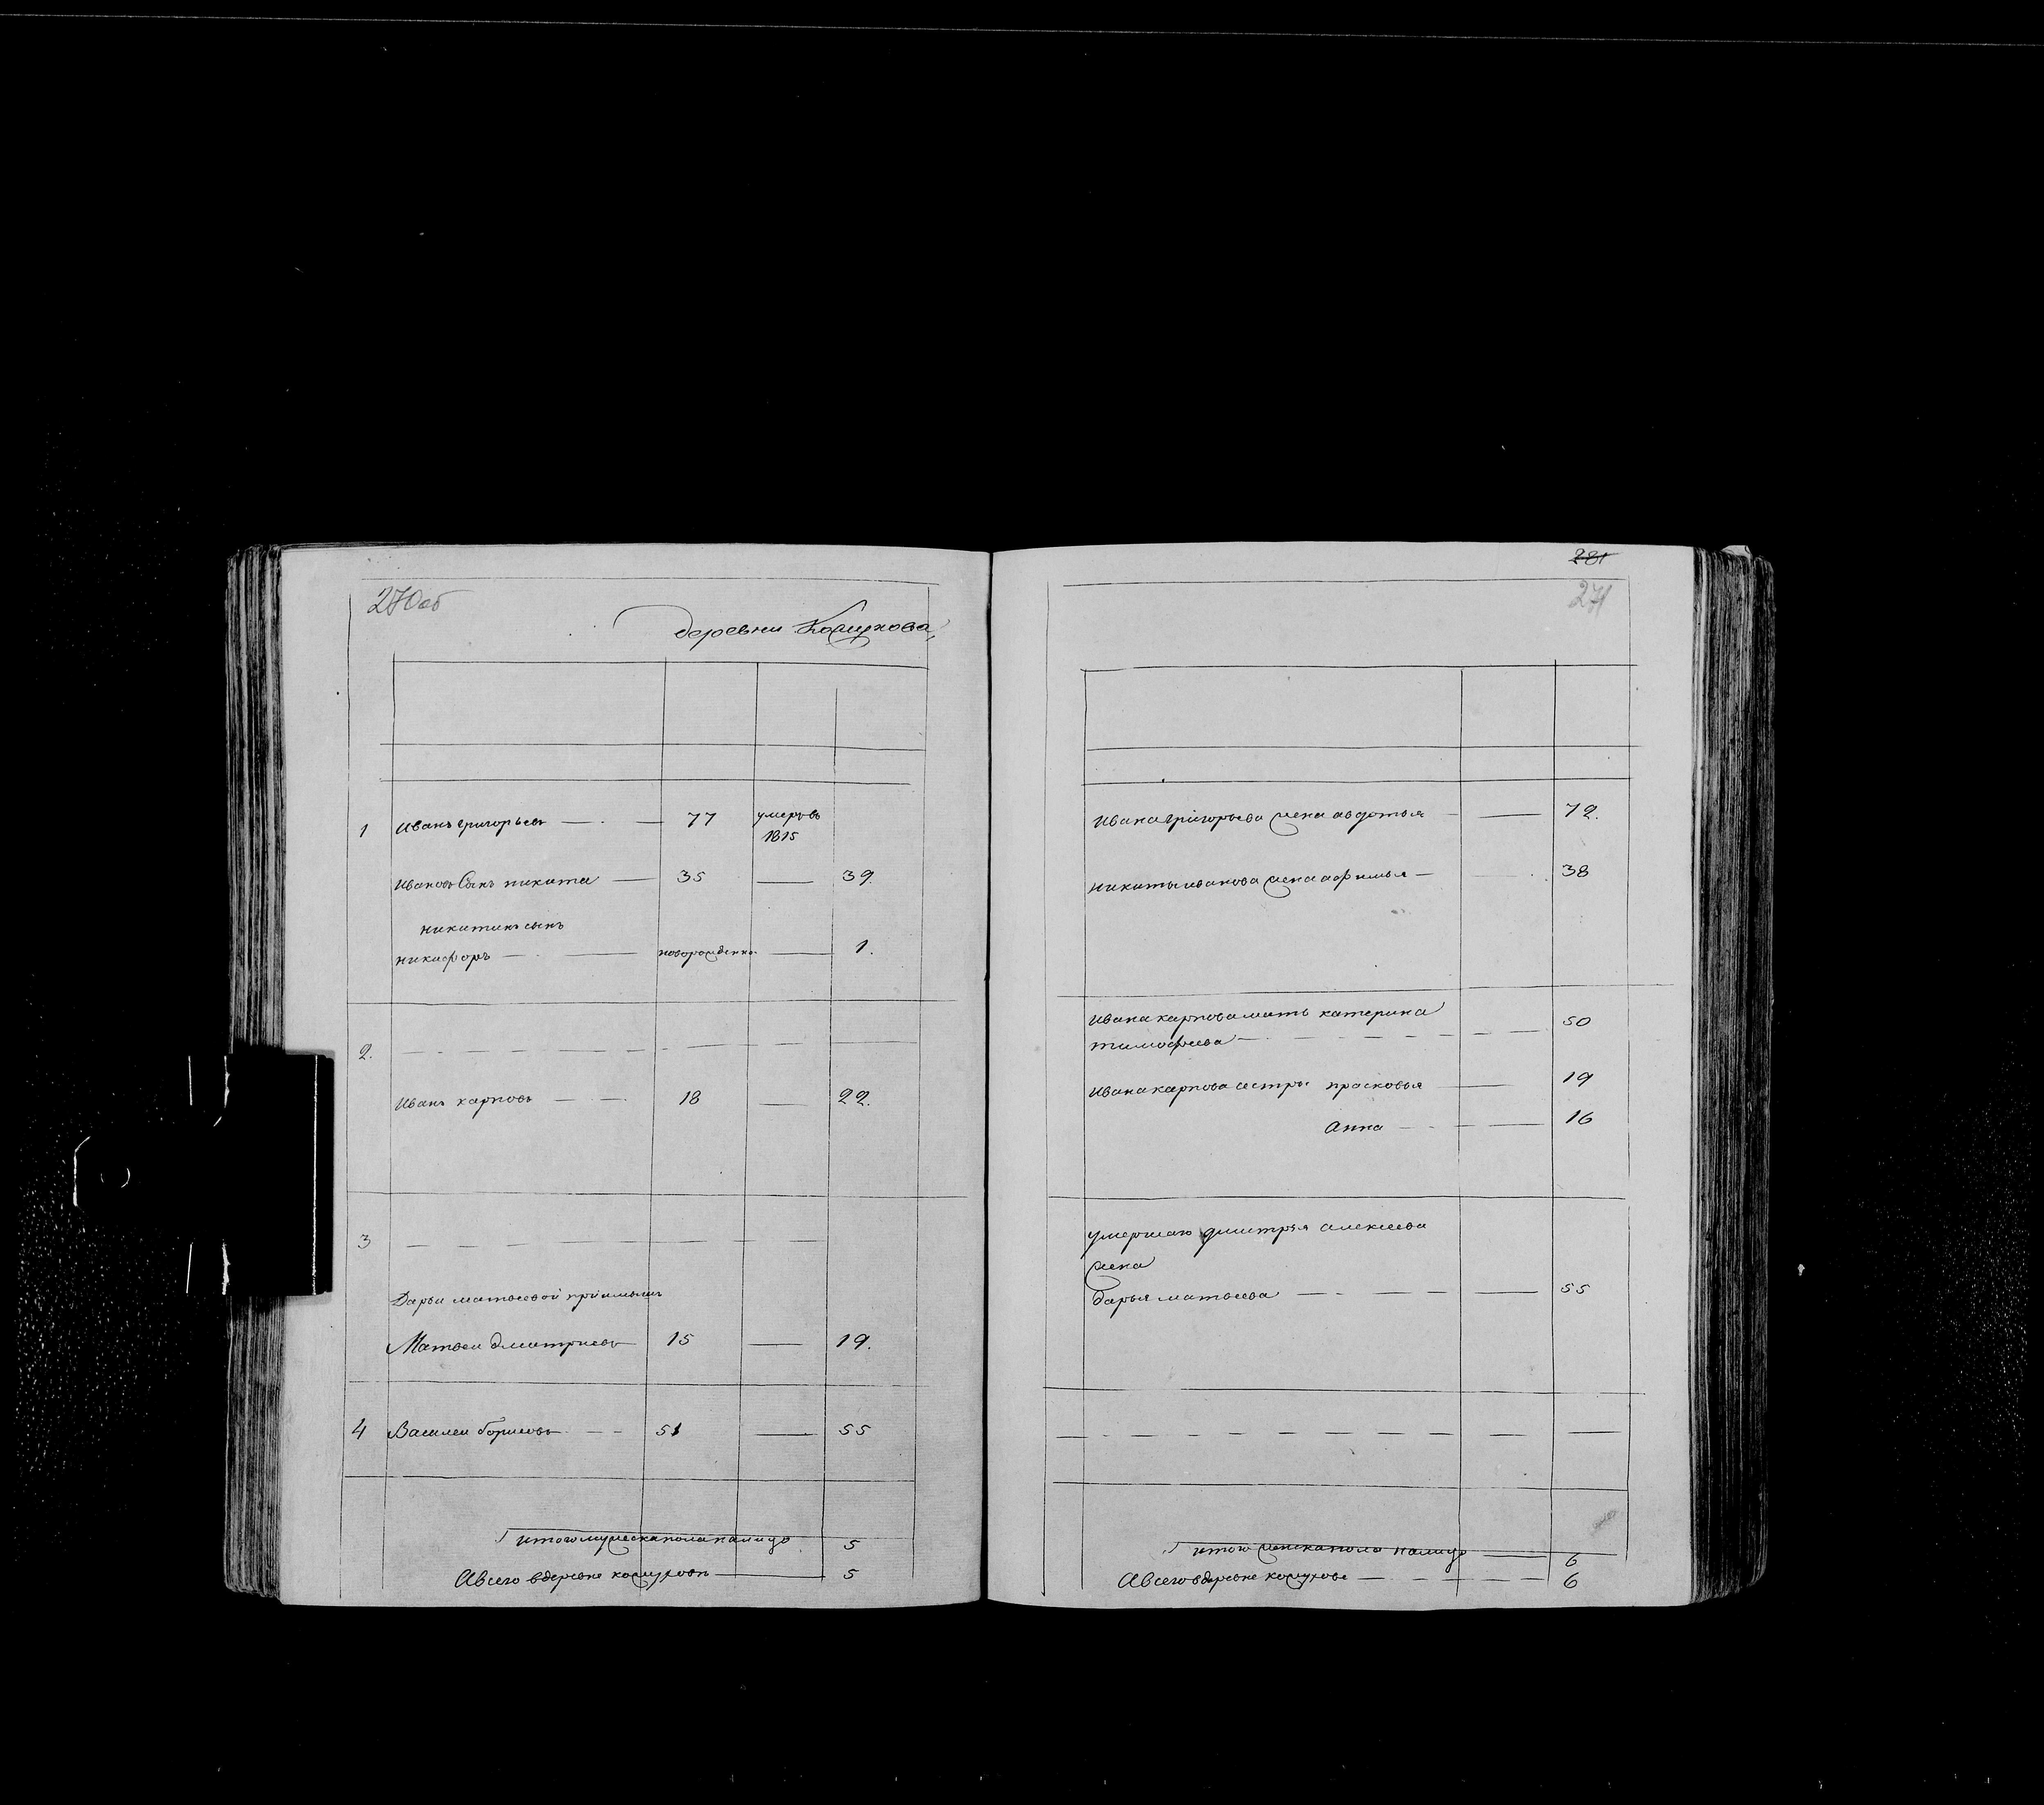 270об
деревни Кожухова
1 Иванъ григорьевъ 77 умеръ въ 1815
Ивановъ Сынъ никита 35 39.
никитинъ сынъ
никифоръ новорожденъ 1.
2.
Иванъ карповъ 18 22.
3
Дарьи матвеевой приимышъ
Матвеи дмитриевъ 15 19.
4 Василеи борисовъ 51 55
итого мужеска пола налицо 5
А всего в деревне кожухове 5
281
271
Ивана григорьева жена авдотья 72.
никиты иванова жена афимья 38
Ивана карпова мать катерина
тимофеева 50
Ивана карпова сестры прасковья 19
Анна 16
умершаго дмитрия алексеева
жена
дарья матвеева 55
итого женска пола налицо 6
А всего в деревне кожухове 6